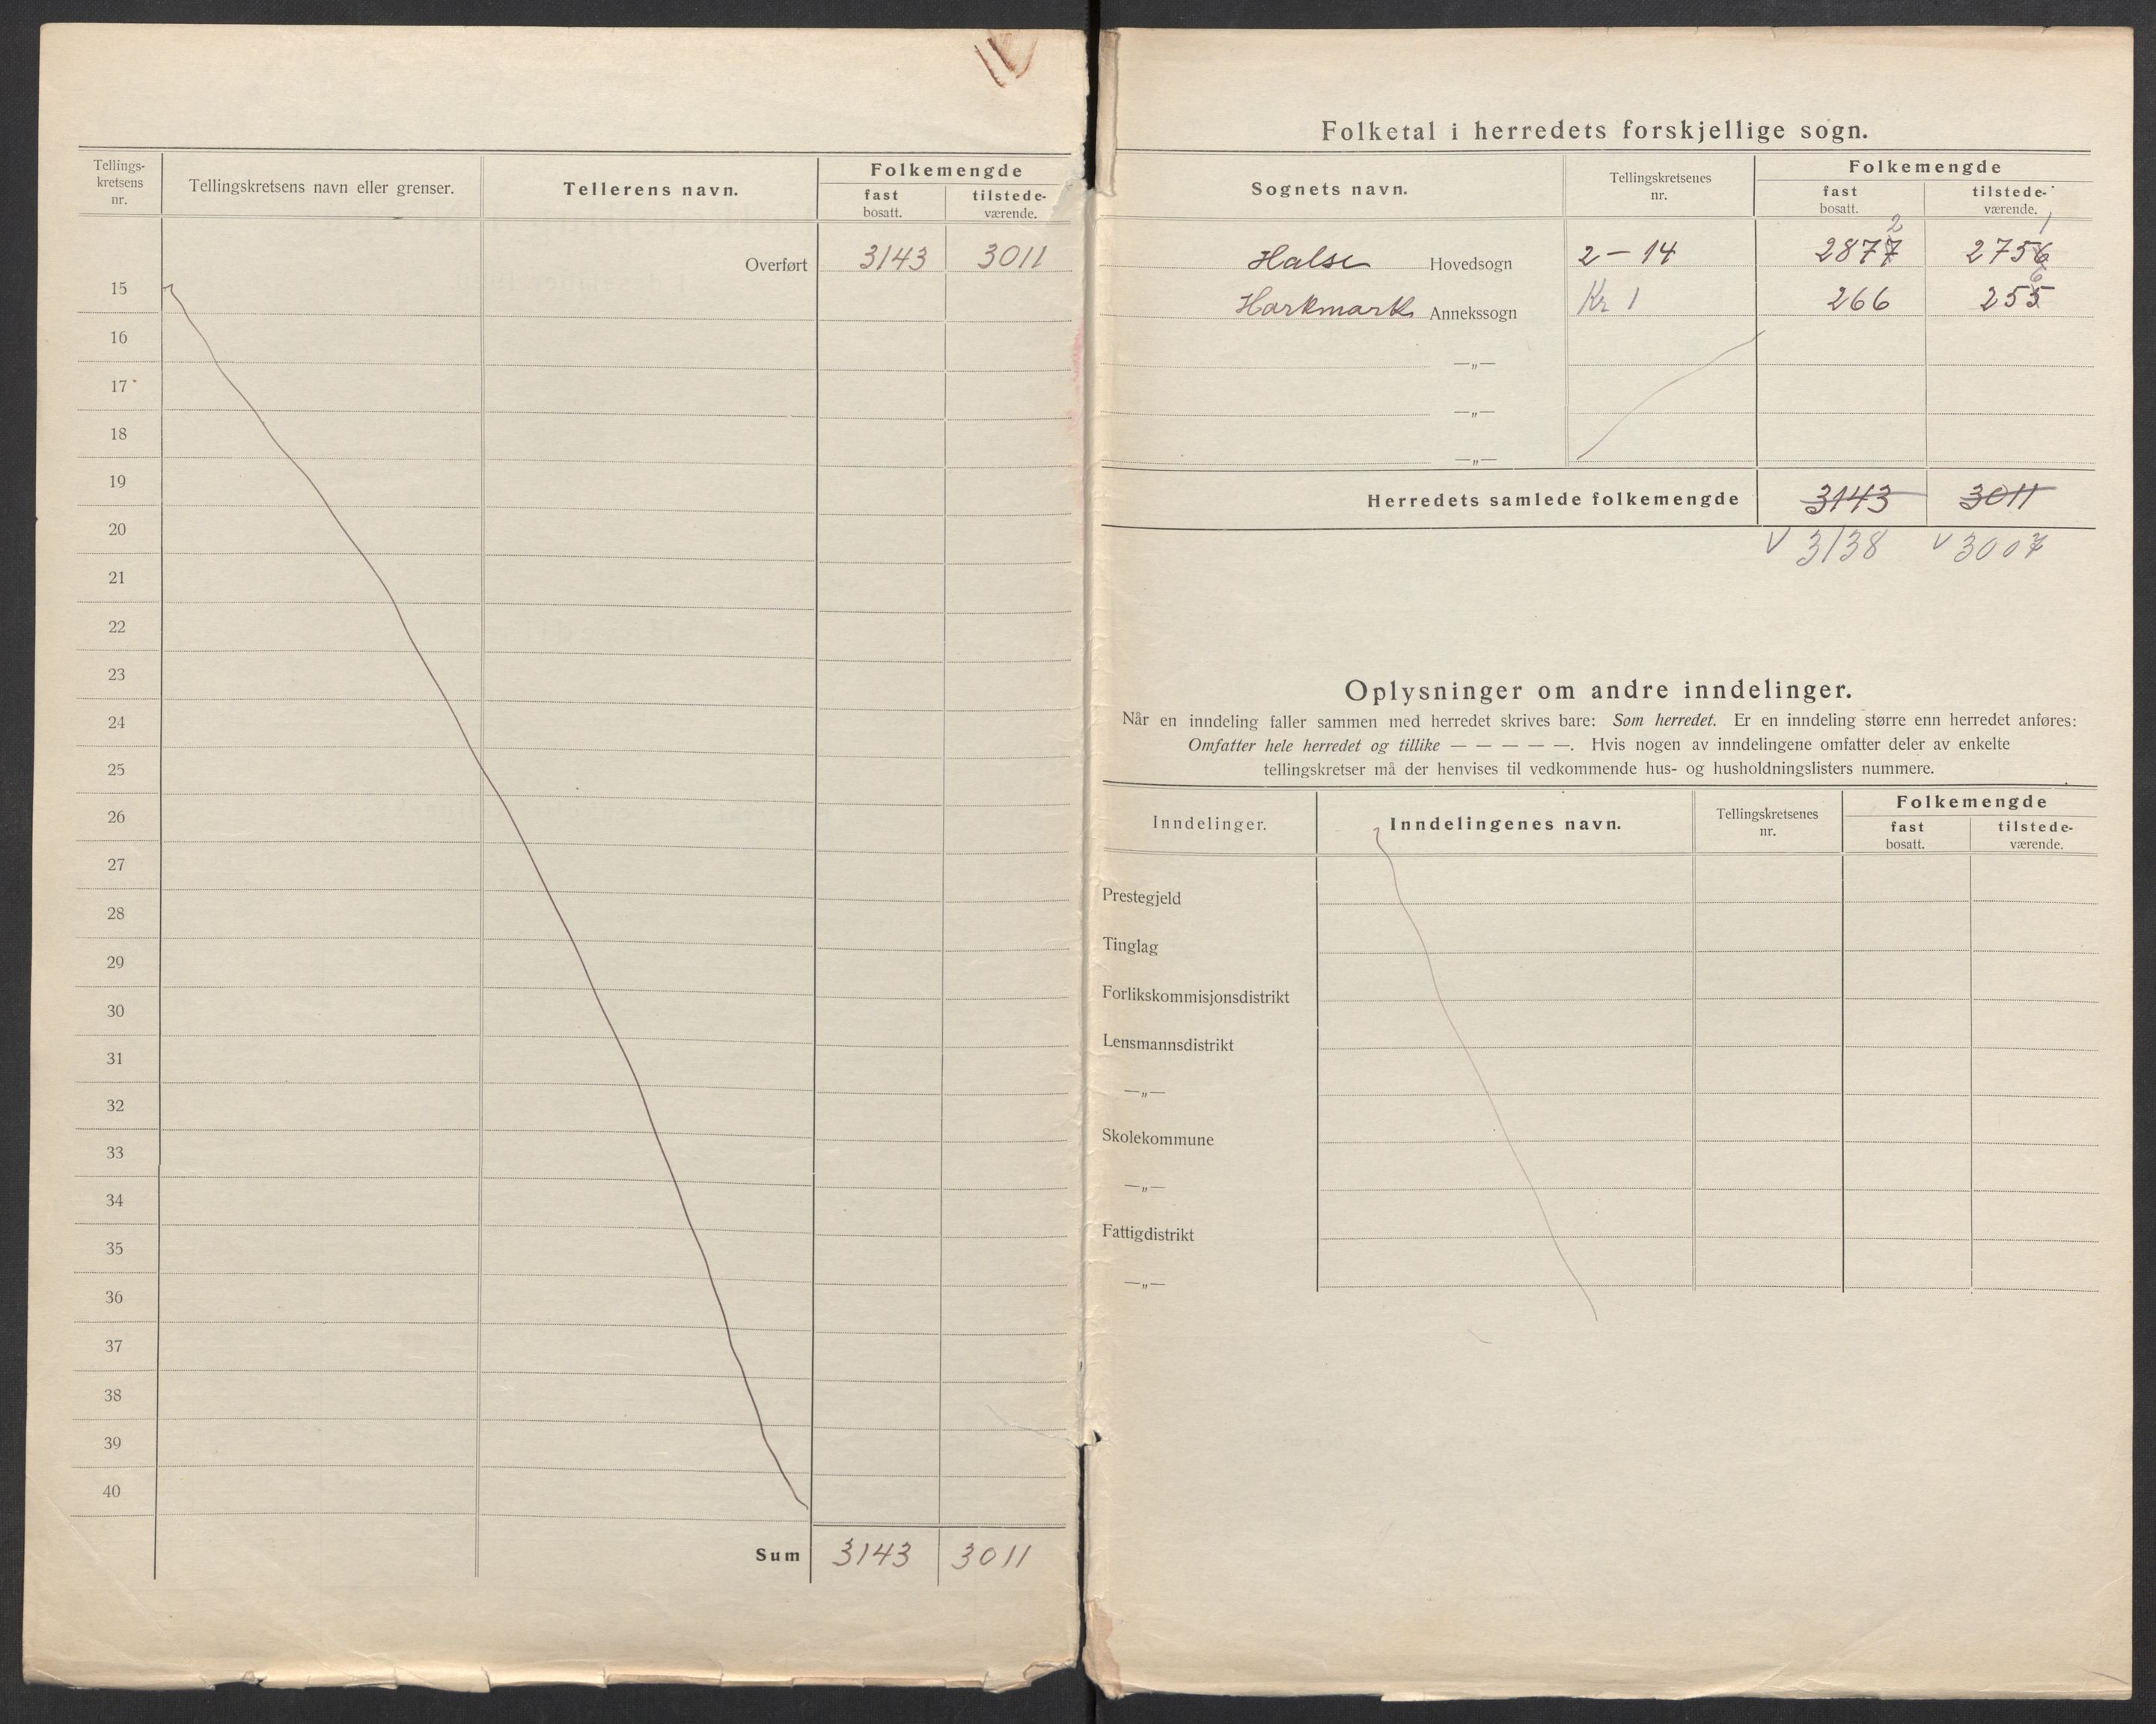 Tellings-
kretsens
nr.
Tellingskretsens navn eller grenser.
Tellerens navn.
Folkemengde
fast
bosatt.
tilstede-
værende.
Overført 3143 3011
15
16
17
18
19
20
21
22
23
24
25
26
27
28
29
30
31
32
33
34
35
36
37
38
39
40
Sum 3143 3011
Folketal i herredets forskjellige sogn.
Sognets navn.
Tellingskretsenes
nr.
Folkemengde
fast
bosatt.
tilstede-
værende.
2 1
Halse Hovedsogn 2 – 14 2877 2756
6
Harkmark Annekssogn Kr 1 266 255
—„—
—„—
—„—
Herredets samlede folkemengde 3143 3011
V 3138 V 3007
Oplysninger om andre inndelinger.
Når en inndeling faller sammen med herredet skrives bare: Som herredet. Er en inndeling større enn herredet anføres:
Omfatter hele herredet og tillike — — — — —. Hvis nogen av inndelingene omfatter deler av enkelte
tellingskretser må der henvises til vedkommende hus- og husholdningslisters nummere.
Inndelinger.
Inndelingenes navn.
Tellingskretsenes
nr.
Folkemengde
fast
bosatt.
tilstede-
værende.
Prestegjeld
Tinglag
Forlikskommisjonsdistrikt
Lensmannsdistrikt
—„—
Skolekommune
—„—
Fattigdistrikt
—„—